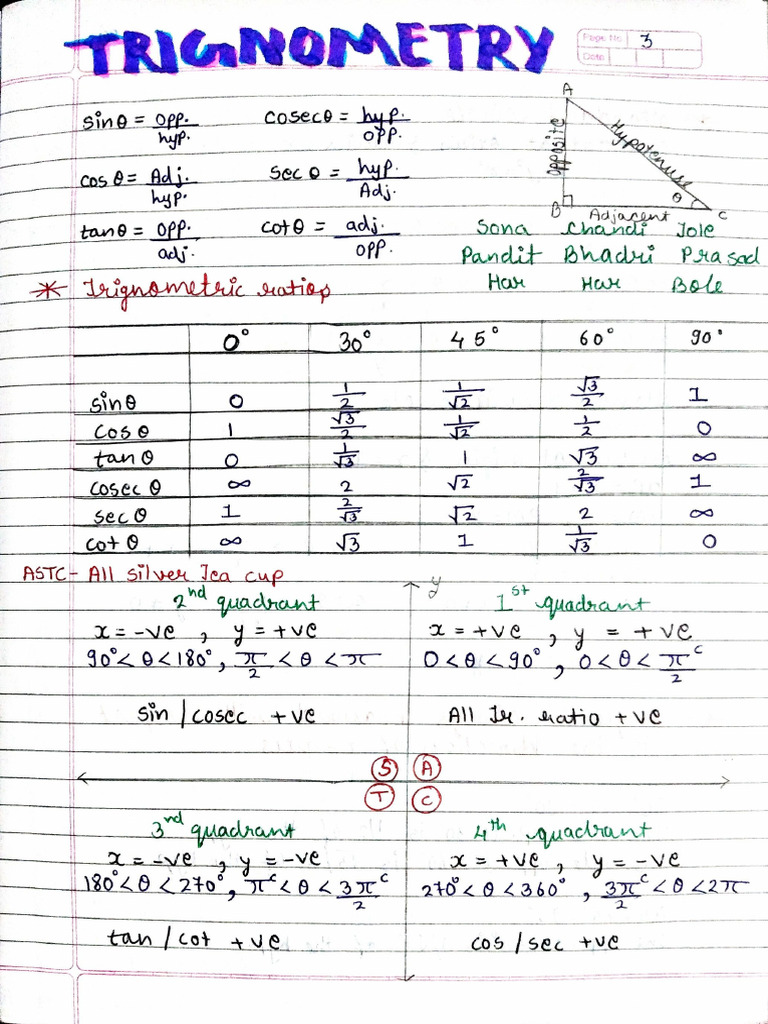 TRIGNOMETRY
Page No. 3
Date
sinθ = opp./hyp. cosecθ = hyp./opp.
cosθ = Adj./hyp. secθ = hyp./Adj.
tanθ = opp./adj. cotθ = adj./opp.
A
opposite Hypotenuse θ
B Adjacent C
Sona Chandi Tole
Pandit Bhadri Prasad
Har Har Bole
* Trignometric ratios
0° 30° 45° 60° 90°
sinθ 0 1/2 1/√2 √3/2 1
cosθ 1 √3/2 1/√2 1/2 0
tanθ 0 1/√3 1 √3 ∞
cosecθ ∞ 2 √2 2/√3 1
secθ 1 2/√3 √2 2 ∞
cotθ ∞ √3 1 1/√3 0
ASTC- All silver Tea cup
y
2nd quadrant
x = -ve , y = +ve
90° < θ < 180° , π/2 < θ < π
sin / cosec +ve
1st quadrant
x = +ve , y = +ve
0 < θ < 90° , 0 < θ < π/2 ᶜ
All Tr. ratio +ve
S A
T C
3rd quadrant
x = -ve , y = -ve
180° < θ < 270° , πᶜ < θ < 3π/2 ᶜ
tan / cot +ve
4th quadrant
x = +ve , y = -ve
270° < θ < 360° , 3π/2 ᶜ < θ < 2π
cos / sec +ve